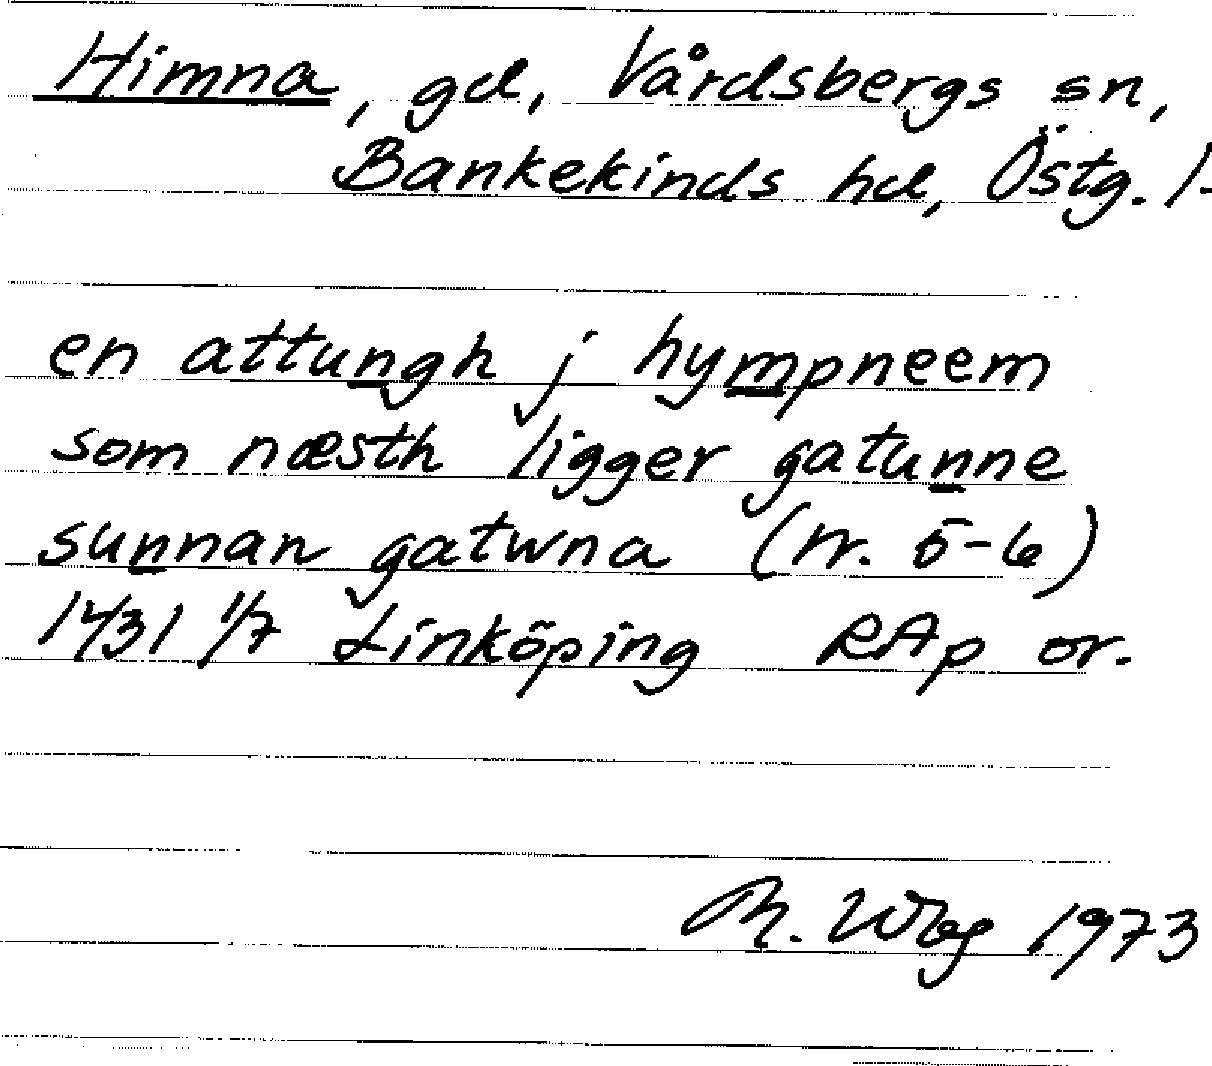 Himna, gd, Vårdsbergs sn,
Bankekinds hd, Östg. l.
en attungh j hympneem
som næsth ligger gatunne
sunnan gatwna (nr. 5-6)
1431 1/7 Linköping RAp or.
Wbg 1973